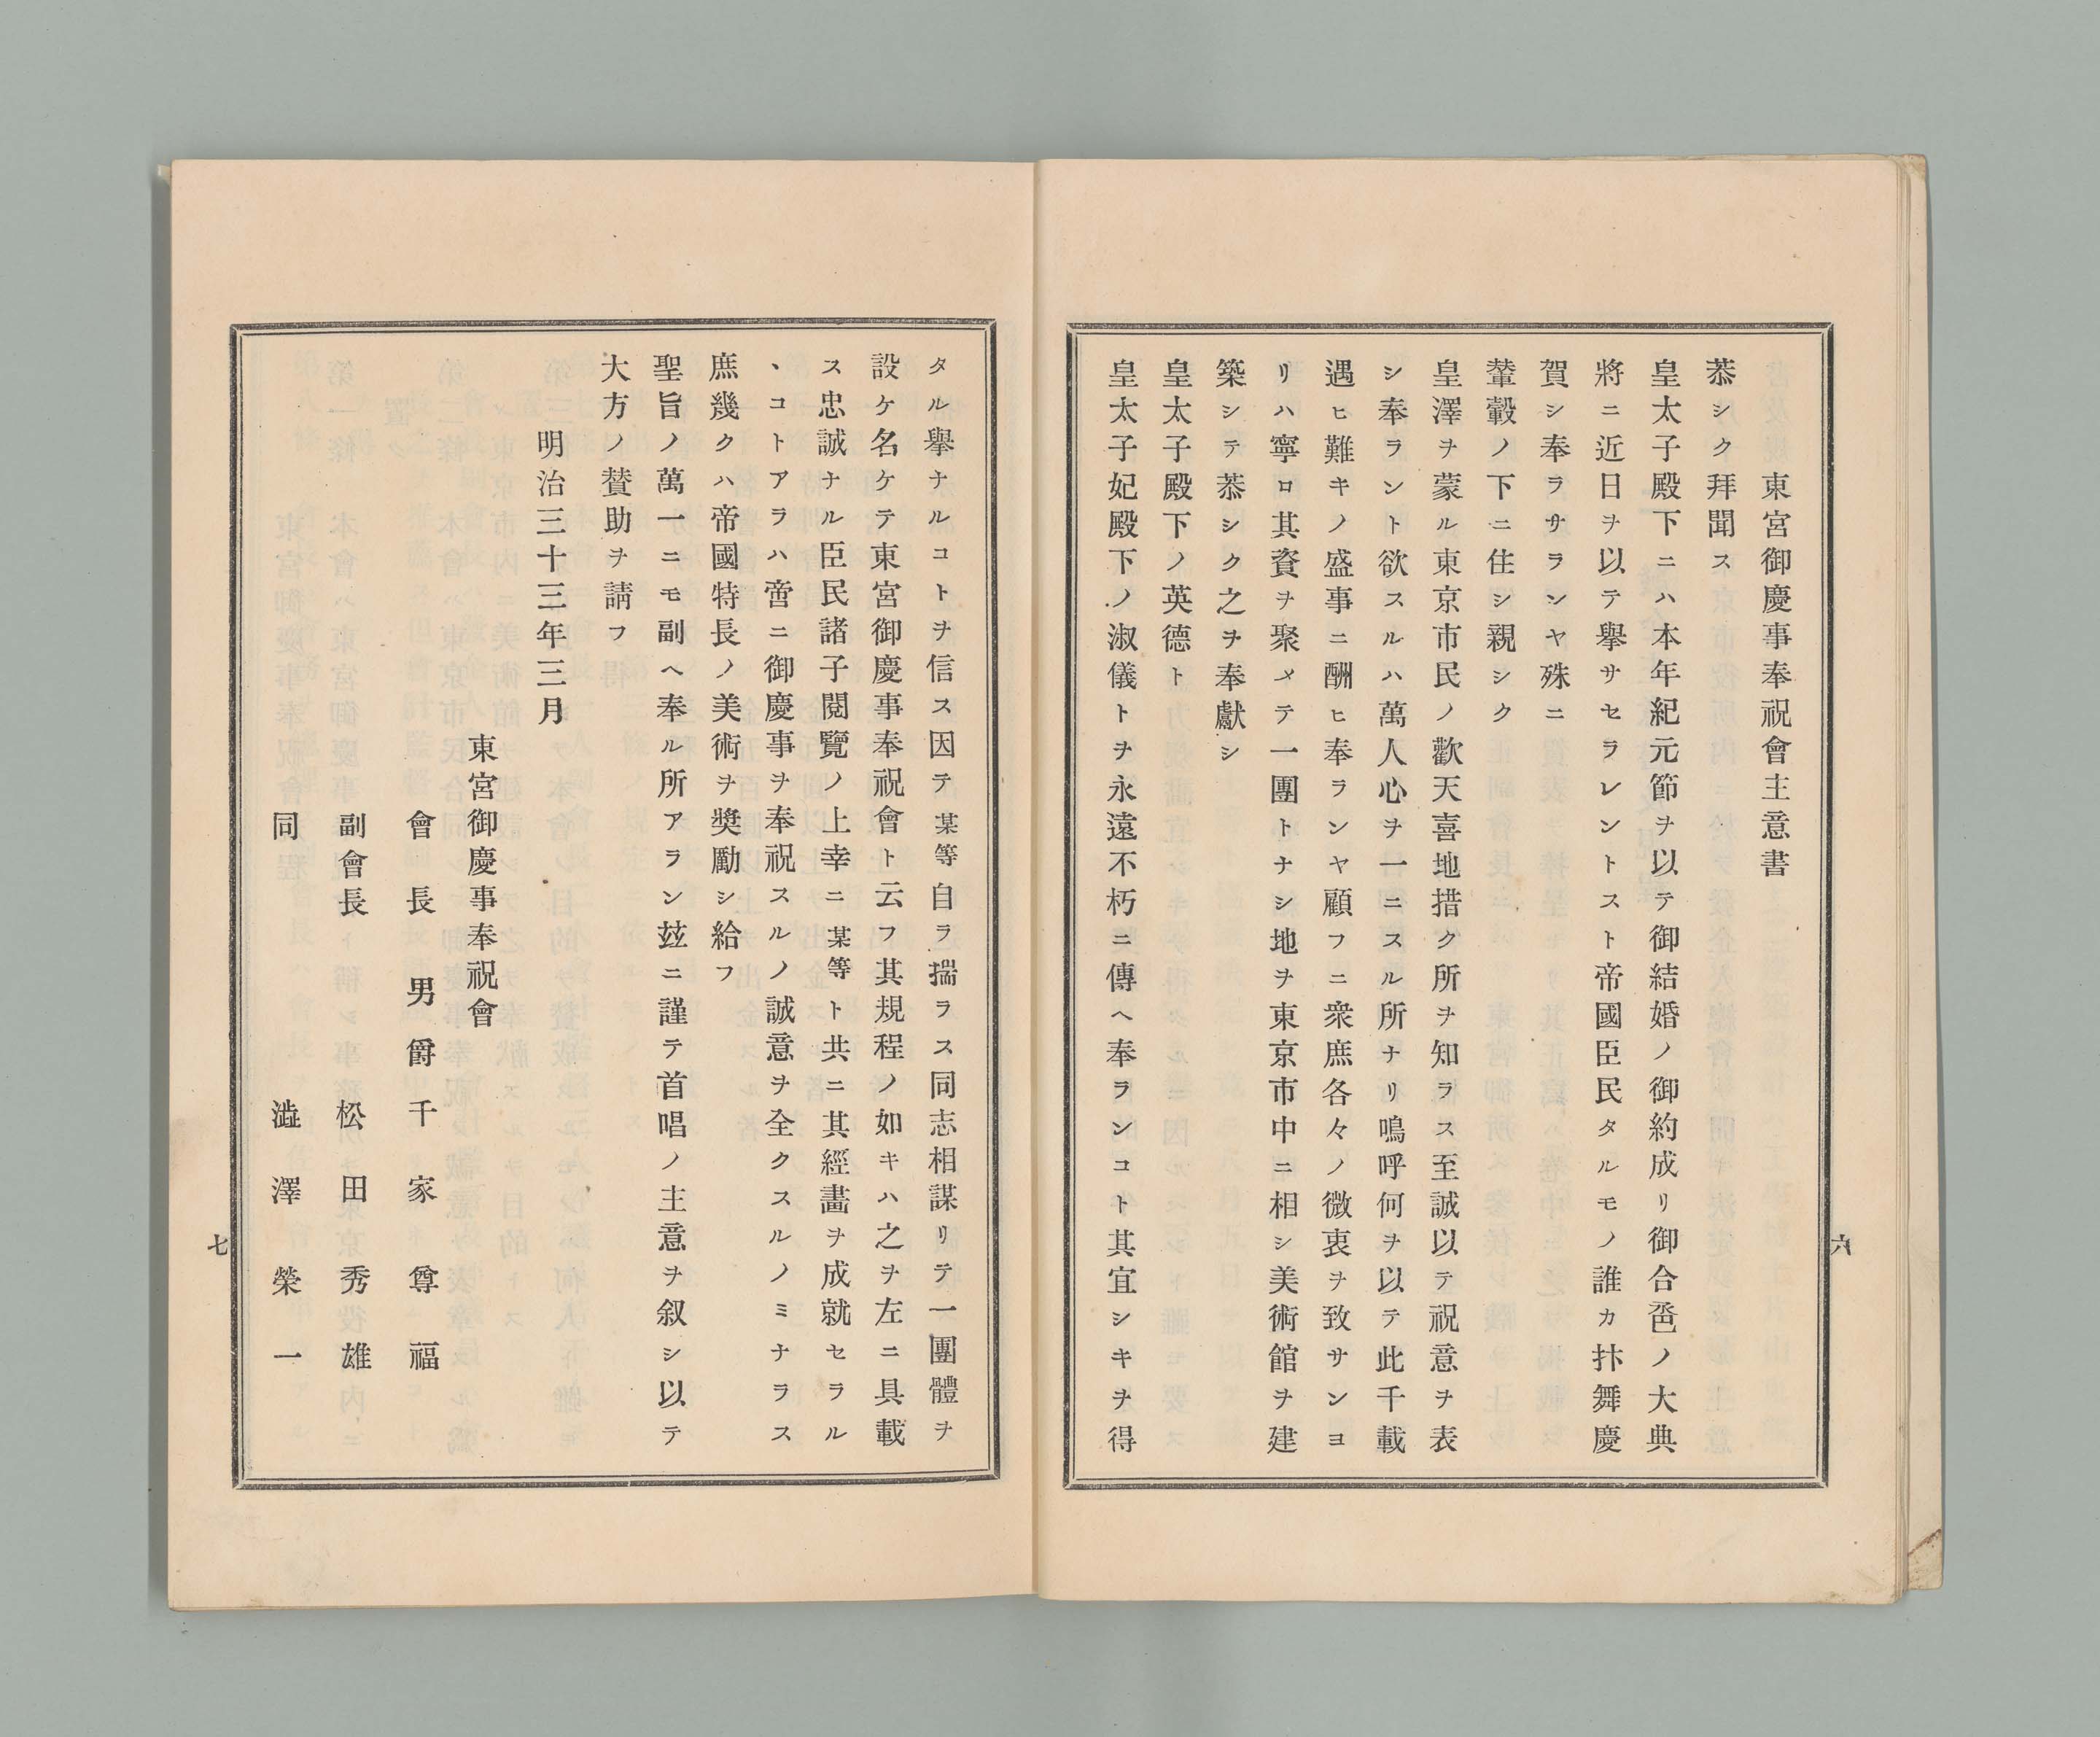 東宮御慶事奉祝會主意書
恭シク拜聞ス
皇太子殿下ニハ本年紀元節ヲ以テ御結婚ノ御約成リ御合卺ノ大典
將ニ近日ヲ以テ擧サセラレントスト帝國臣民タルモノ誰カ抃舞慶
賀シ奉ラサランヤ殊ニ
輦轂ノ下ニ住シ親シク
皇澤ヲ蒙ル東京市民ノ歡天喜地措ク所ヲ知ラス至誠以テ祝意ヲ表
シ奉ラント欲スルハ萬人心ヲ一ニスル所ナリ鳴呼何ヲ以テ此千載
遇ヒ難キノ盛事ニ酬ヒ奉ランヤ顧フニ衆庶各々ノ微衷ヲ致サンヨ
リハ寧ロ其資ヲ聚メテ一團トナシ地ヲ東京市中ニ相シ美術館ヲ建
築シテ恭シク之ヲ奉獻シ
皇太子殿下ノ英德ト
皇太子妃殿下ノ淑儀トヲ永遠不朽ニ傳ヘ奉ランコト其宜シキヲ得
六
タル擧ナルコトヲ信ス因テ某等自ラ揣ラス同志相謀リテ一團體ヲ
設ケ名ケテ東宮御慶事奉祝會ト云フ其規程ノ如キハ之ヲ左ニ具載
ス忠誠ナル臣民諸子閱覽ノ上幸ニ某等ト共ニ其經畫ヲ成就セラル
ヽコトアラハ啻ニ御慶事ヲ奉祝スルノ誠意ヲ全クスルノミナラス
庶幾クハ帝國特長ノ美術ヲ奬勵シ給フ
聖旨ノ萬一ニモ副ヘ奉ル所アラン玆ニ謹テ首唱ノ主意ヲ叙シ以テ
大方ノ賛助ヲ請フ
明治三十三年三月
東宮御慶事奉祝會
會長 男爵 千家尊福
副會長 松田秀雄
同 澁澤榮一
七